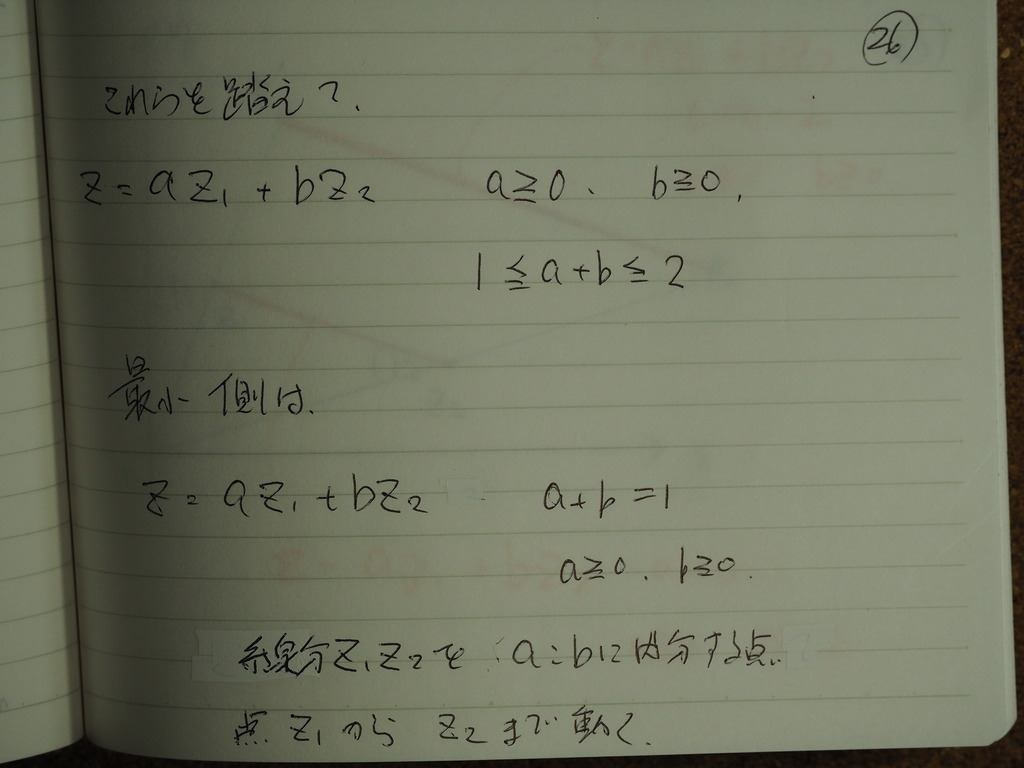 26
これらを踏えて、
z = az₁ + bz₂ a≧0、 b≧0,
1 ≦ a+b ≦ 2
最小側は、
z = az₁ + bz₂ a+b=1
a≧0、b≧0.
線分z₁z₂を a:bに内分する点.
点 z₁ から z₂ まで動く.